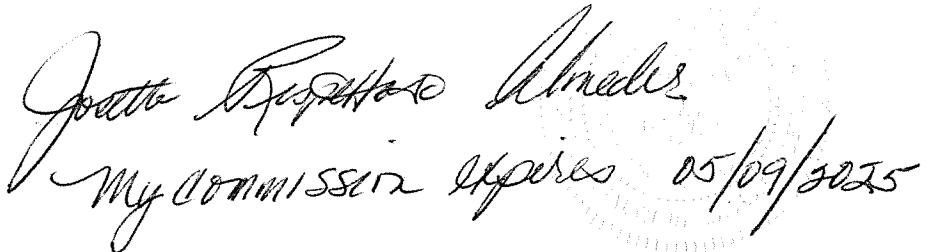 Joette Almeder
My commission expires 05/09/2025